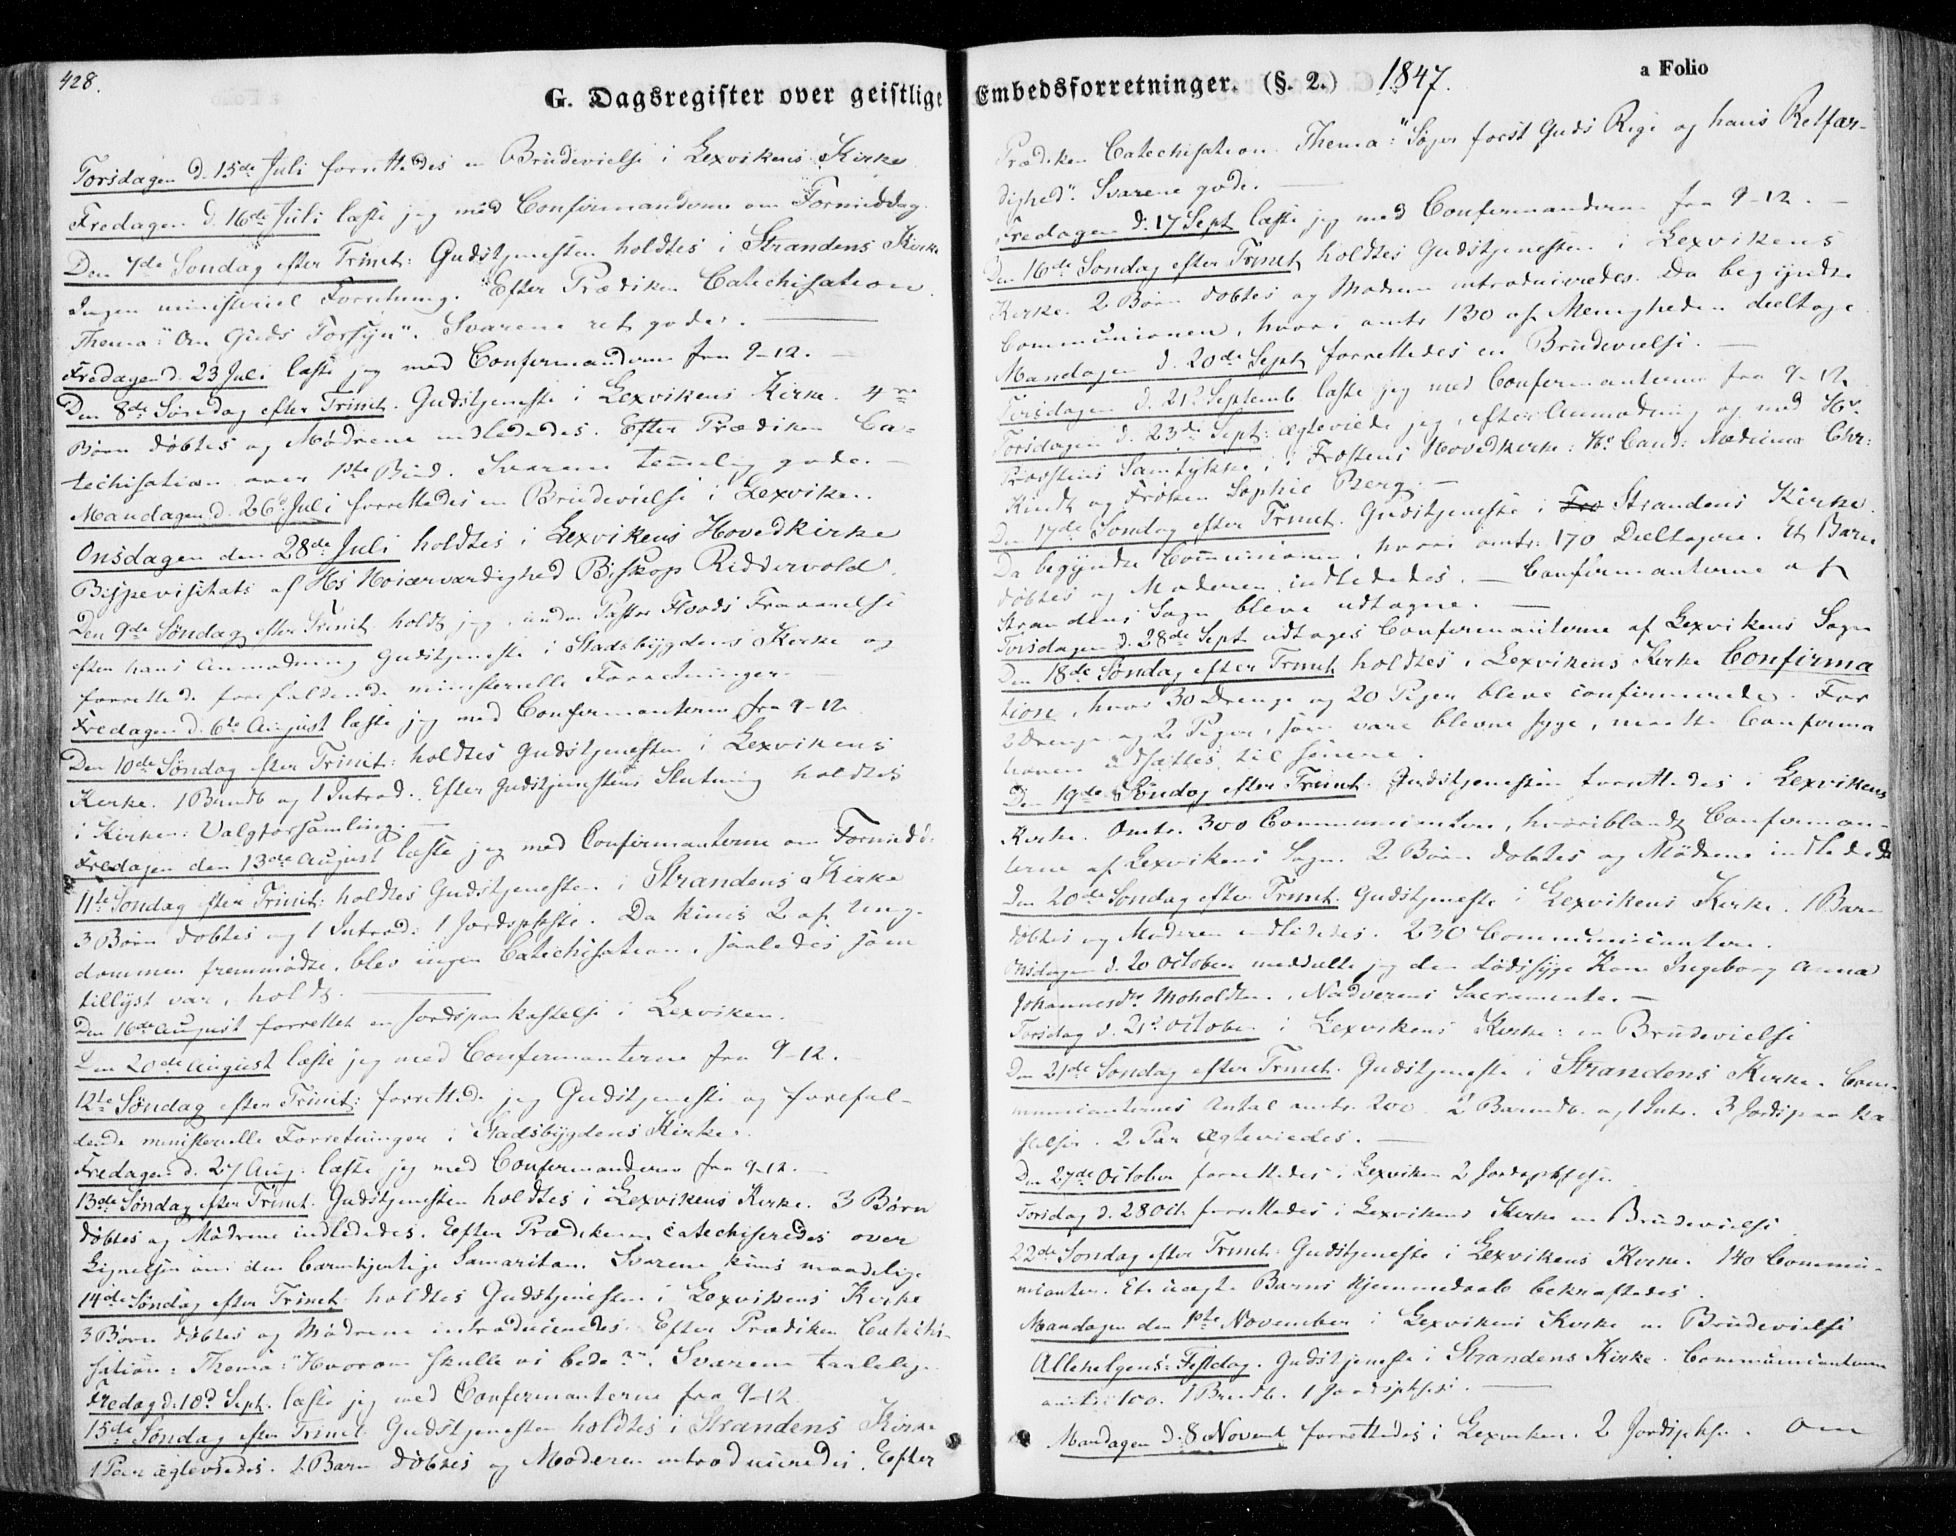 428.
G. Dagsregister over geistlige
Torsdagen d. 15de Juli forrettedes en Brudevielse i Lexvikens Kirke
Fredagen d. 16de Juli læste jeg med Confirmanderne om Formiddag.
Den 7de Søndag efter Trinit: Gudstjenesten holdtes i Strandens Kirke
Ingen ministeriel Forretning. Efter Prædiken Catechisation.
Thema: "Om Guds Forsyn". Svarene ret gode. —
Fredagen d. 23 Juli læste jeg med Confirmanderne fra 9-12. —
Den 8de Søndag efter Trinit. Gudstjeneste i Lexvikens Kirke. 4re
Børn døbtes og Mødrene indledades. Efter Prædiken Ca-
techisation over 1ste Bud. Svarene temelig gode. —
Mandagen d. 26de Juli forrettedes en Brudevielse i Lexviken.
Onsdagen den 28de Juli holdtes i Lexvikens Hovedkirke
Bispevisitats af Hs Høiærværdighed Biskop Riddervold.
Den 9de Søndag efter Trinit holdt jeg, under Pastor Floods Fraværelse
efter hans Anmodning Gudstjeneste i Stadsbygdens Kirke og
forrettede forefaldende ministerielle Forretninger. —
Fredagen d. 6te August læste jeg med Confirmanterne fra 9-12
Den 10de Søndag efter Trinit: holdtes Gudstjenesten i Lexvikens
Kirke. 1 Barndb og 1 Introd. Efter Gudstjenestens Slutning holdtes
i Kirken: Valgforsamling. —
Fredagen den 13de August læste jeg med Confirmanterne om Formidd.
11te Søndag efter Trinit: holdtes Gudstjenesten i Strandens Kirke
3 Børn døbtes og 1 Introd: 1 Jordspkste. Da kuns 2 af Ung-
dommen fremmødte, blev ingen Catechisation, saaledes som
tillyst var, holdt. —
Den 16de August forrettet en Jordspaakastelse i Lexviken.
Den 20de August læste jeg med Confirmanterne fra 9-12. —
12te Søndag efter Trinit: forrettede jeg Gudstjeneste og forefal-
dende ministerielle Forretninger i Stadsbygdens Kirke.
Fredagen d. 27 Aug. læste jeg med Confirmanderne fra 9-12. —
13de Søndag efter Trinit. Gudstjenesten holdtes i Lexvikens Kirke. 3 Børn
døbtes og Mødrene indledades. Efter Prædikenen catechiseredes over
Lignelsen om den barmhjertige Samaritan. Svarene kuns maadelige
14de Søndag efter Trinit. holdtes Gudstjenesten i Lexvikens Kirke
3 Børn døbtes og Mødrene introduceredes. Efter Prædiken Catechi-
sation: Thema: "Hvorom skulle vi bede?". Svarene taalelige
Fredag d. 10d Sept. læste jeg med Confirmanterne fra 9-12
15de Søndag efter Trinit. Gudstjenesten holdtes i Strandens Kirke
1 Par ægteviedes. 1 Barn døbtes og Moderen introduceredes. Efter
Embedsforretninger. (§. 2.) 1847. a Folio
Prædiken Catechisation. Thema: "Søger først Guds Rige og hans Retfær-
dighed". Svarene gode. —
Fredagen d. 17 Sept læste jeg med Confirmanderne fra 9-12. —
Den 16de Søndag efter Trinit holdtes Gudstjenesten i Lexvikens
Kirke. 2 Børn døbtes og Mødrene introduceredes. Da begyndte
Communionen, hvori omtr. 130 af Menigheden deeltoge
Mandagen d. 20de Sept forrettedes en Brudevielse. —
Tirsdagen d. 21de Septemb læste jeg med Confirmanterne fra 9-12
Torsdagen d. 23de Sept: ægteviede jeg, efter Anmodning og med Hr.
Provstens Samtykke, i Frostens Hovedkirke: Hr. Cand: Medicinæ Chr:
Kindt og Frøken Sophie Berg. —
Den 17de Søndag efter Trinit. Gudstjeneste i Fro Strandens Kirke.
Da begyndte Communionen, hvori omtr. 170 Deeltagere. Et Barn
døbtes og Moderen indledades. — Confirmanterne af
Strandens Sogn bleve udtagne. —
Tirsdagen d. 28de Sept udtoges Confirmanterne af Lexvikens Sogn
Den 18de Søndag efter Trinit holdtes i Lexvikens Kirke Confirma
tion, hvor 30 Drenge og 20 Piger bleve confirmerede. For
2 Drenge og 2 Piger, som vare blevne syge, maatte Confirma
tionen udsættes til senere.
Den 19de Søndag efter Trinit. Gudstjenesten forrettedes i Lexvikens
Kirke. Omtr. 300 Communicanter, hvoriblandt Confirman-
terne af Lexvikens Sogn. 2 Børn døbtes og Mødrene indledede
Den 20de Søndag efter Trinit. Gudstjeneste i Lexvikens Kirke. 1 Barn
døbtes og Moderen indledades. 230 Communicanter.
Onsdagen d. 20 October meddeelte jeg den dødssyge Kone Ingeborg Anna
Johannesdtr Moholdten, Nadverens Sacramente. —
Torsdag d. 21d October i Lexvikens Kirke: en Brudevielse
Den 21de Søndag efter Trinit. Gudstjeneste i Strandens Kirke. Com-
municanternes Antal omtr. 200. 2 Barndb. og 1 Intr. 3 Jordspaaka
stelser. 2 Par ægteviedes. —
Den 27de October forrettedes i Lexviken 2 Jordspkelser.
Torsdag d. 28 Oct. forrettedes i Lexvikens Kirke en Brudevielse
22de Søndag efter Trinit. Gudstjeneste i Lexvikens Kirke. 140 Commu-
nicanter. Et uægte Barns Hjemmedaab bekræftedes.
Mandagen den 1ste November i Lexvikens Kirke en Brudevielse
Allehelgens-Festdag. Gudstjeneste i Strandens Kirke. Communicanterne
omtr: 100. 1 Barndb. 1 Jordspkse. —
Mandagen d. 8 Novemb forrettedes i Lexviken. 2 Jordspkse. Om